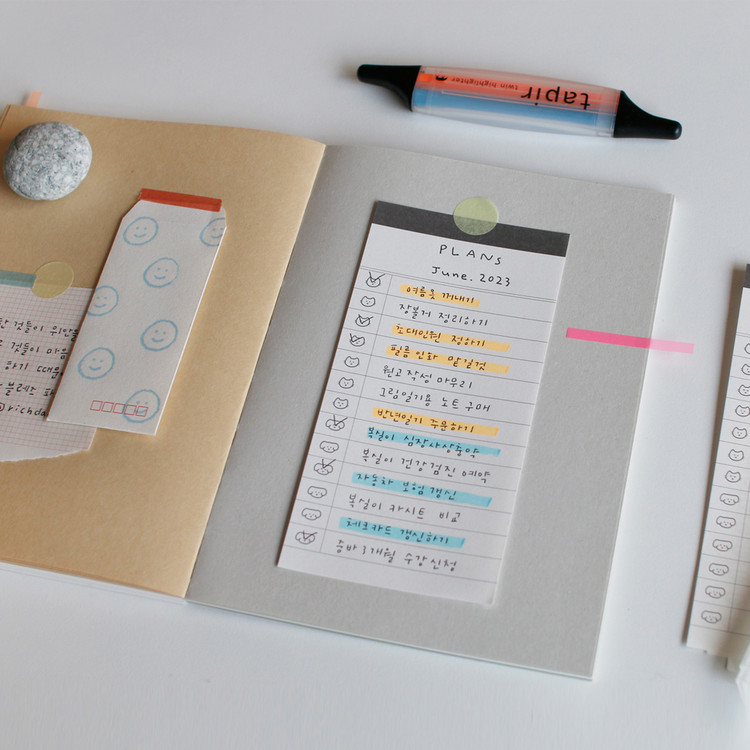 tapir
twin highlighter
PLANS
June. 2023
여름옷 꺼내기
장볼거 정리하기
초대인원 정하기
필름인화 맡길것
원고작성 마무리
그림일기용 노트 구매
반년일기 주문하기
복실이 심장사상충약
복실이 건강검진 예약
자동차 보험 갱신
복실이 카시트 비교
체크카드 갱신하기
줌바 3개월 수강신청
것들이 위안을
것들이 마음
하기